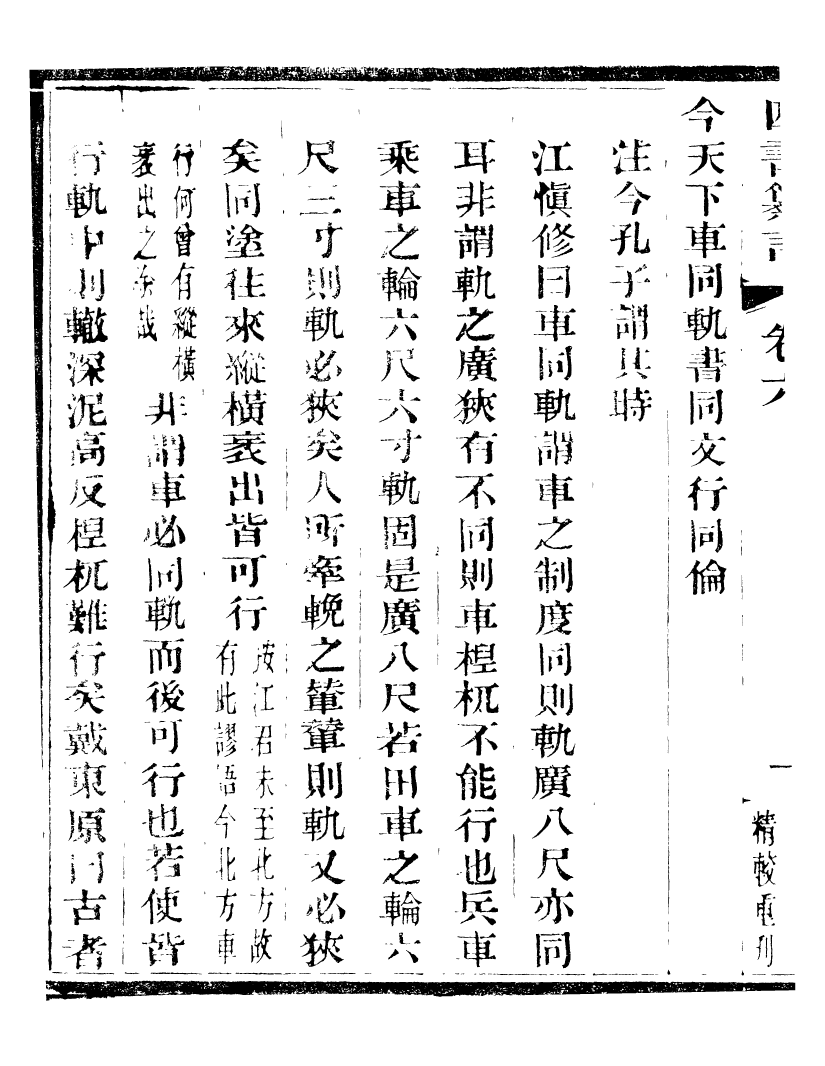 四書纂言 卷六 一 精較重刊
今天下車同軌書同文行同倫
注今孔子謂其時
江慎修曰車同軌謂車之制度同則軌廣八尺亦同
耳非謂軌之廣狹有不同則車桯杌不能行也兵車
乘車之輪六尺六寸軌固是廣八尺若田車之輪六
尺三寸則軌必狹矣人所牽輓之輂輦則軌又必狹
矣同塗往來縱橫衺出皆可行
按江君未至北方故
有此謬語今北方車
行何曾有縱橫
衺出之途哉
非謂車必同軌而後可行也若使皆
行軌中則轍深泥高反桯杌難行矣戴東原曰古者